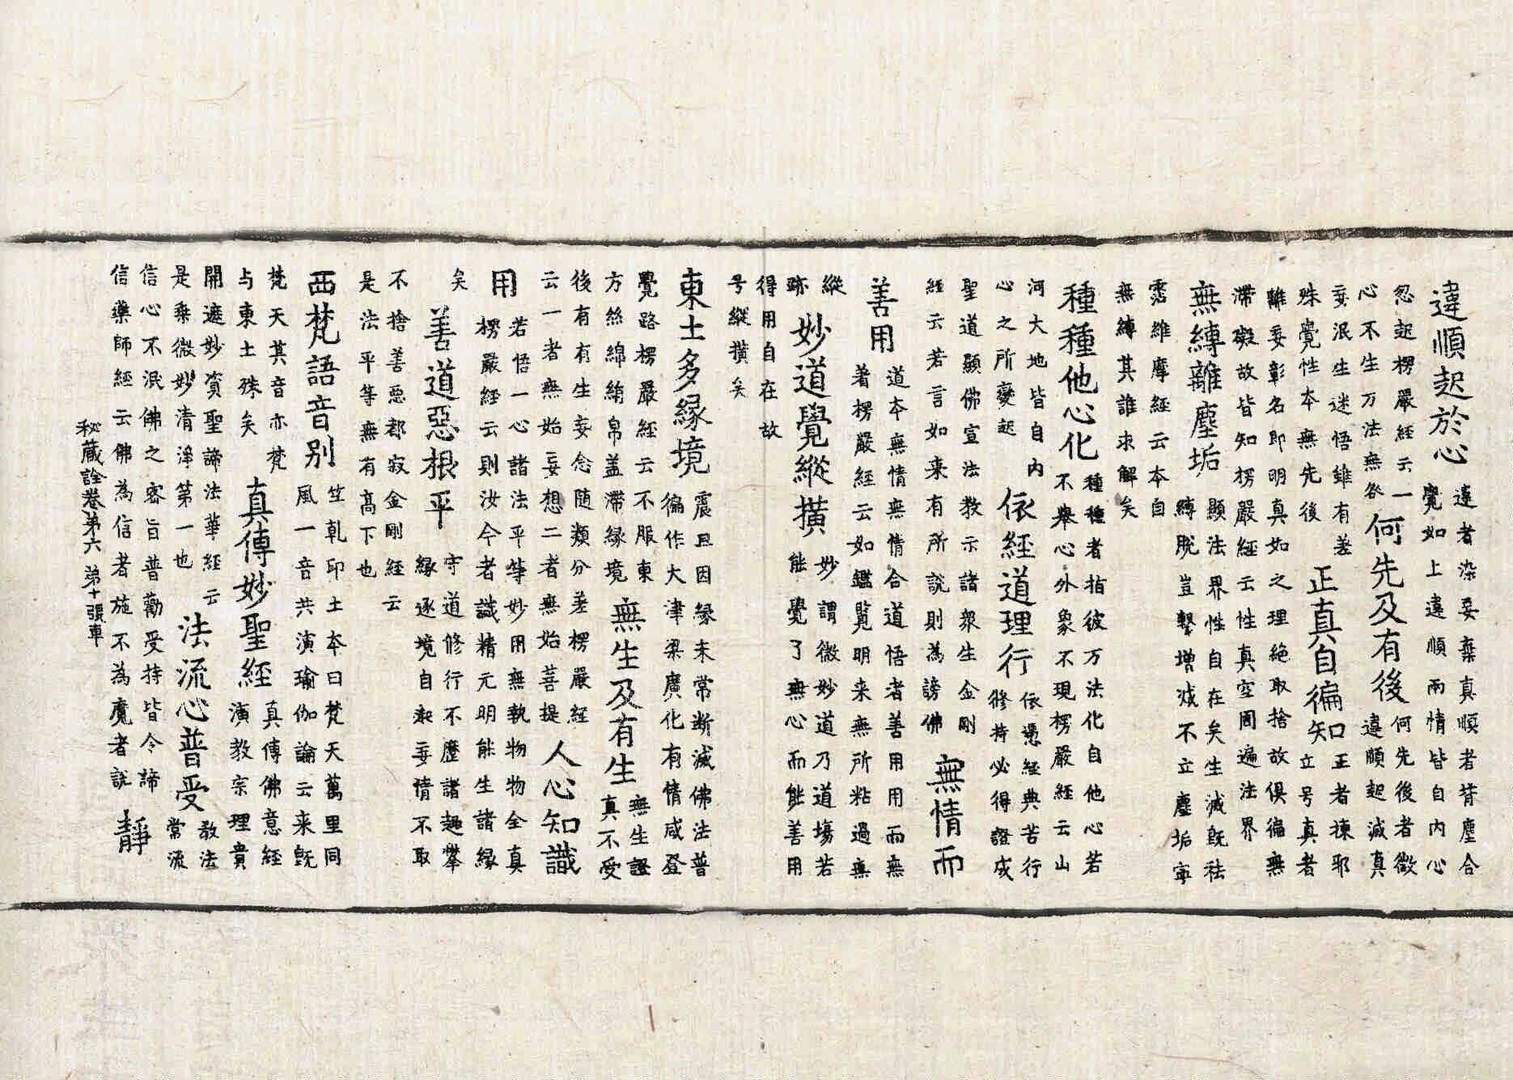 違順起於心
違者染妄棄真順者背塵合
覺如上違順兩情皆自内心
忽起楞嚴經云一
心不生万法無咎
何先及有後
何先後者徵
違順起減真
妄泯生迷悟雖有差
殊覺性本無先後
正真自徧知
正者揀邪
立号真者
離妄彰名即明真如之理絶取捨故俱徧無
滯礙故皆知楞嚴經云性真空周遍法界
無縛離塵垢
顯法界性自在矣生減旣袪
縛脫豈繫增減不立塵垢寧
霑維摩經云本自
無縛其誰求解矣
種種他心化
種種者指彼万法化自他心若
不舉心外象不現楞嚴經云山
河大地皆自内
心之所變起
依經道理行
依憑經典苦行
修持必得證成
聖道顯佛宣法教示諸衆生金剛
經云若言如来有所說則為謗佛
無情而
善用
道本無情無情合道悟者善用用而無
著楞嚴經云如鑑覽明来無所粘過無
縱
跡
妙道覺縱橫
妙謂微妙道乃道塲若
能覺了無心而能善用
得用自在故
号縱橫矣
東土多緣境
震旦因緣未常断滅佛法普
徧作大津梁廣化有情咸登
覺路楞嚴經云不服東
方絲綿絹帛盖滯緣境
無生及有生
無生證
真不受
後有有生妄念随類分差楞嚴經
云一者無始妄想二者無始菩提
人心知識
用
若悟一心諸法平等妙用無執物物全真
楞嚴經云則汝今者識精元明能生諸緣
矣
善道惡根平
守道修行不歷諸趣攀
緣逐境自承妄情不取
不捨善惡都寂金剛經云
是法平等無有高下也
西梵語音别
竺乾印土本曰梵天萬里同
風一音共演瑜伽論云来旣
梵天其音亦梵
与東土殊矣
真傳妙聖經
真傳佛意經
演教宗理貴
開遮妙資聖諦法華經云
是乘微妙清淨第一也
法流心普受
教法
常流
信心不泯佛之密旨普勸受持皆令諦
信藥師經云佛為信者施不為魔者說
靜
秘藏詮卷第六 第十張車